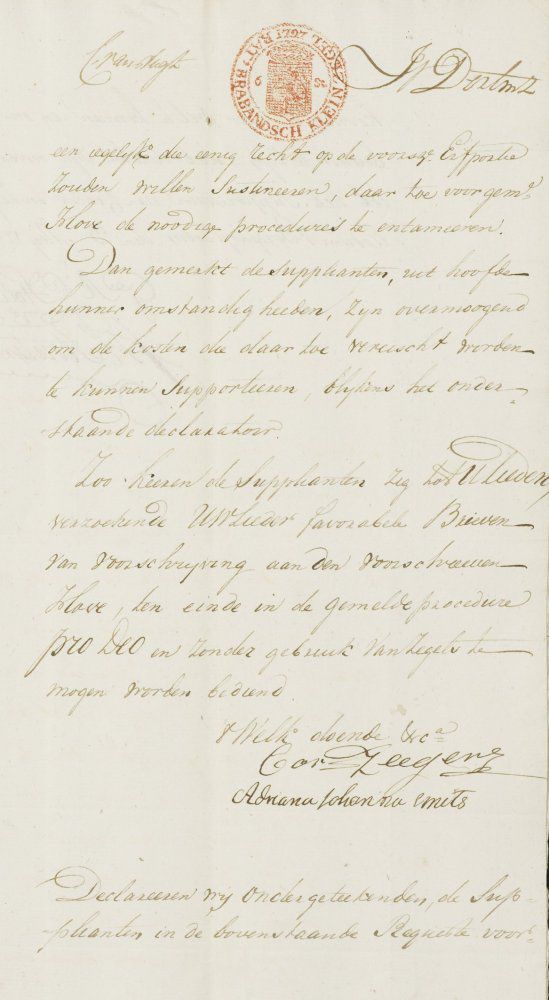 BATT BRABANDSCH KLEIN ZEGEL
6 St
een iegelijk, die eenig recht op de voorsz. Erfportie
zouden willen Sustineeren, daar toe voor gem.
Hove de noodige procedures te entameeren.
Dan gemerkt de Supplianten, uit hoofde
hunner omstandigheeden, zyn onvermoogend
om de kosten die daar toe vereischt worden
te kunnen Supporteeren, blijkens het onder-
staande declaratoir.
Zoo keeren de Supplianten zig tot Ulieden,
verzoekende UWLieder favorabele Brieven
van voorschryving aan den voorschreeven
Hove, ten einde in de gemelde procedure
pro Deo en zonder gebruik van zegels te
mogen worden bediend.
't Welk doende &c.a
Cor. Zeegers
Adriana Johanna Smits
Declareeren wij ondergeteekenden, de Sup-
plianten in de bovenstaande Requeste voor-